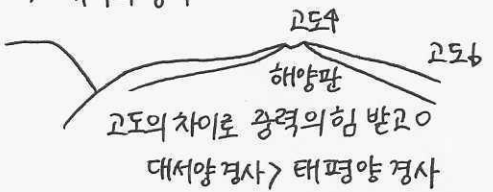 고도↑
고도↓
해양판
고도의 차이로 중력의 힘 받고○
대서양 경사 > 태평양 경사